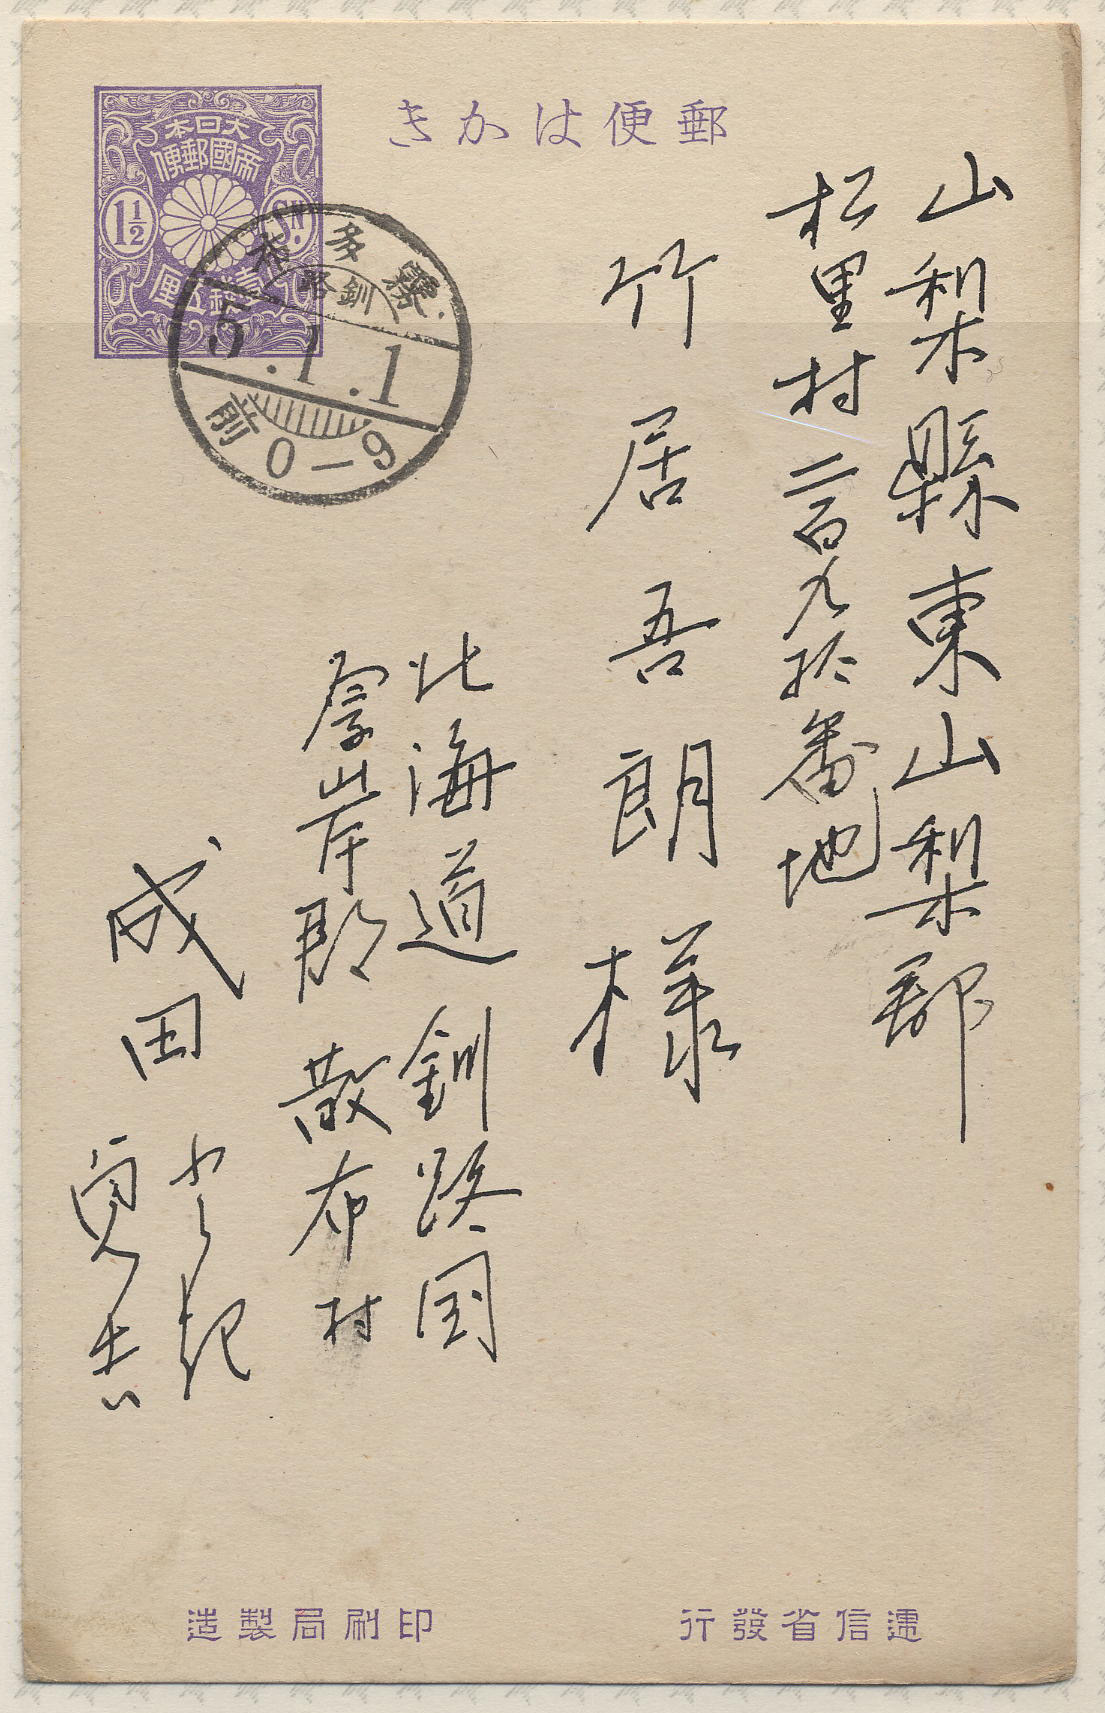 郵便はかき
大日本
帝國郵便
1½ SN.
壹錢五厘
霧多布
釧路
5.1.1
前0-9
山梨縣東山梨郡
松里村二百九拾番地
竹居吾朗様
北海道釧路国
厚岸郡散布村
成田
逓信省發行
印刷局製造